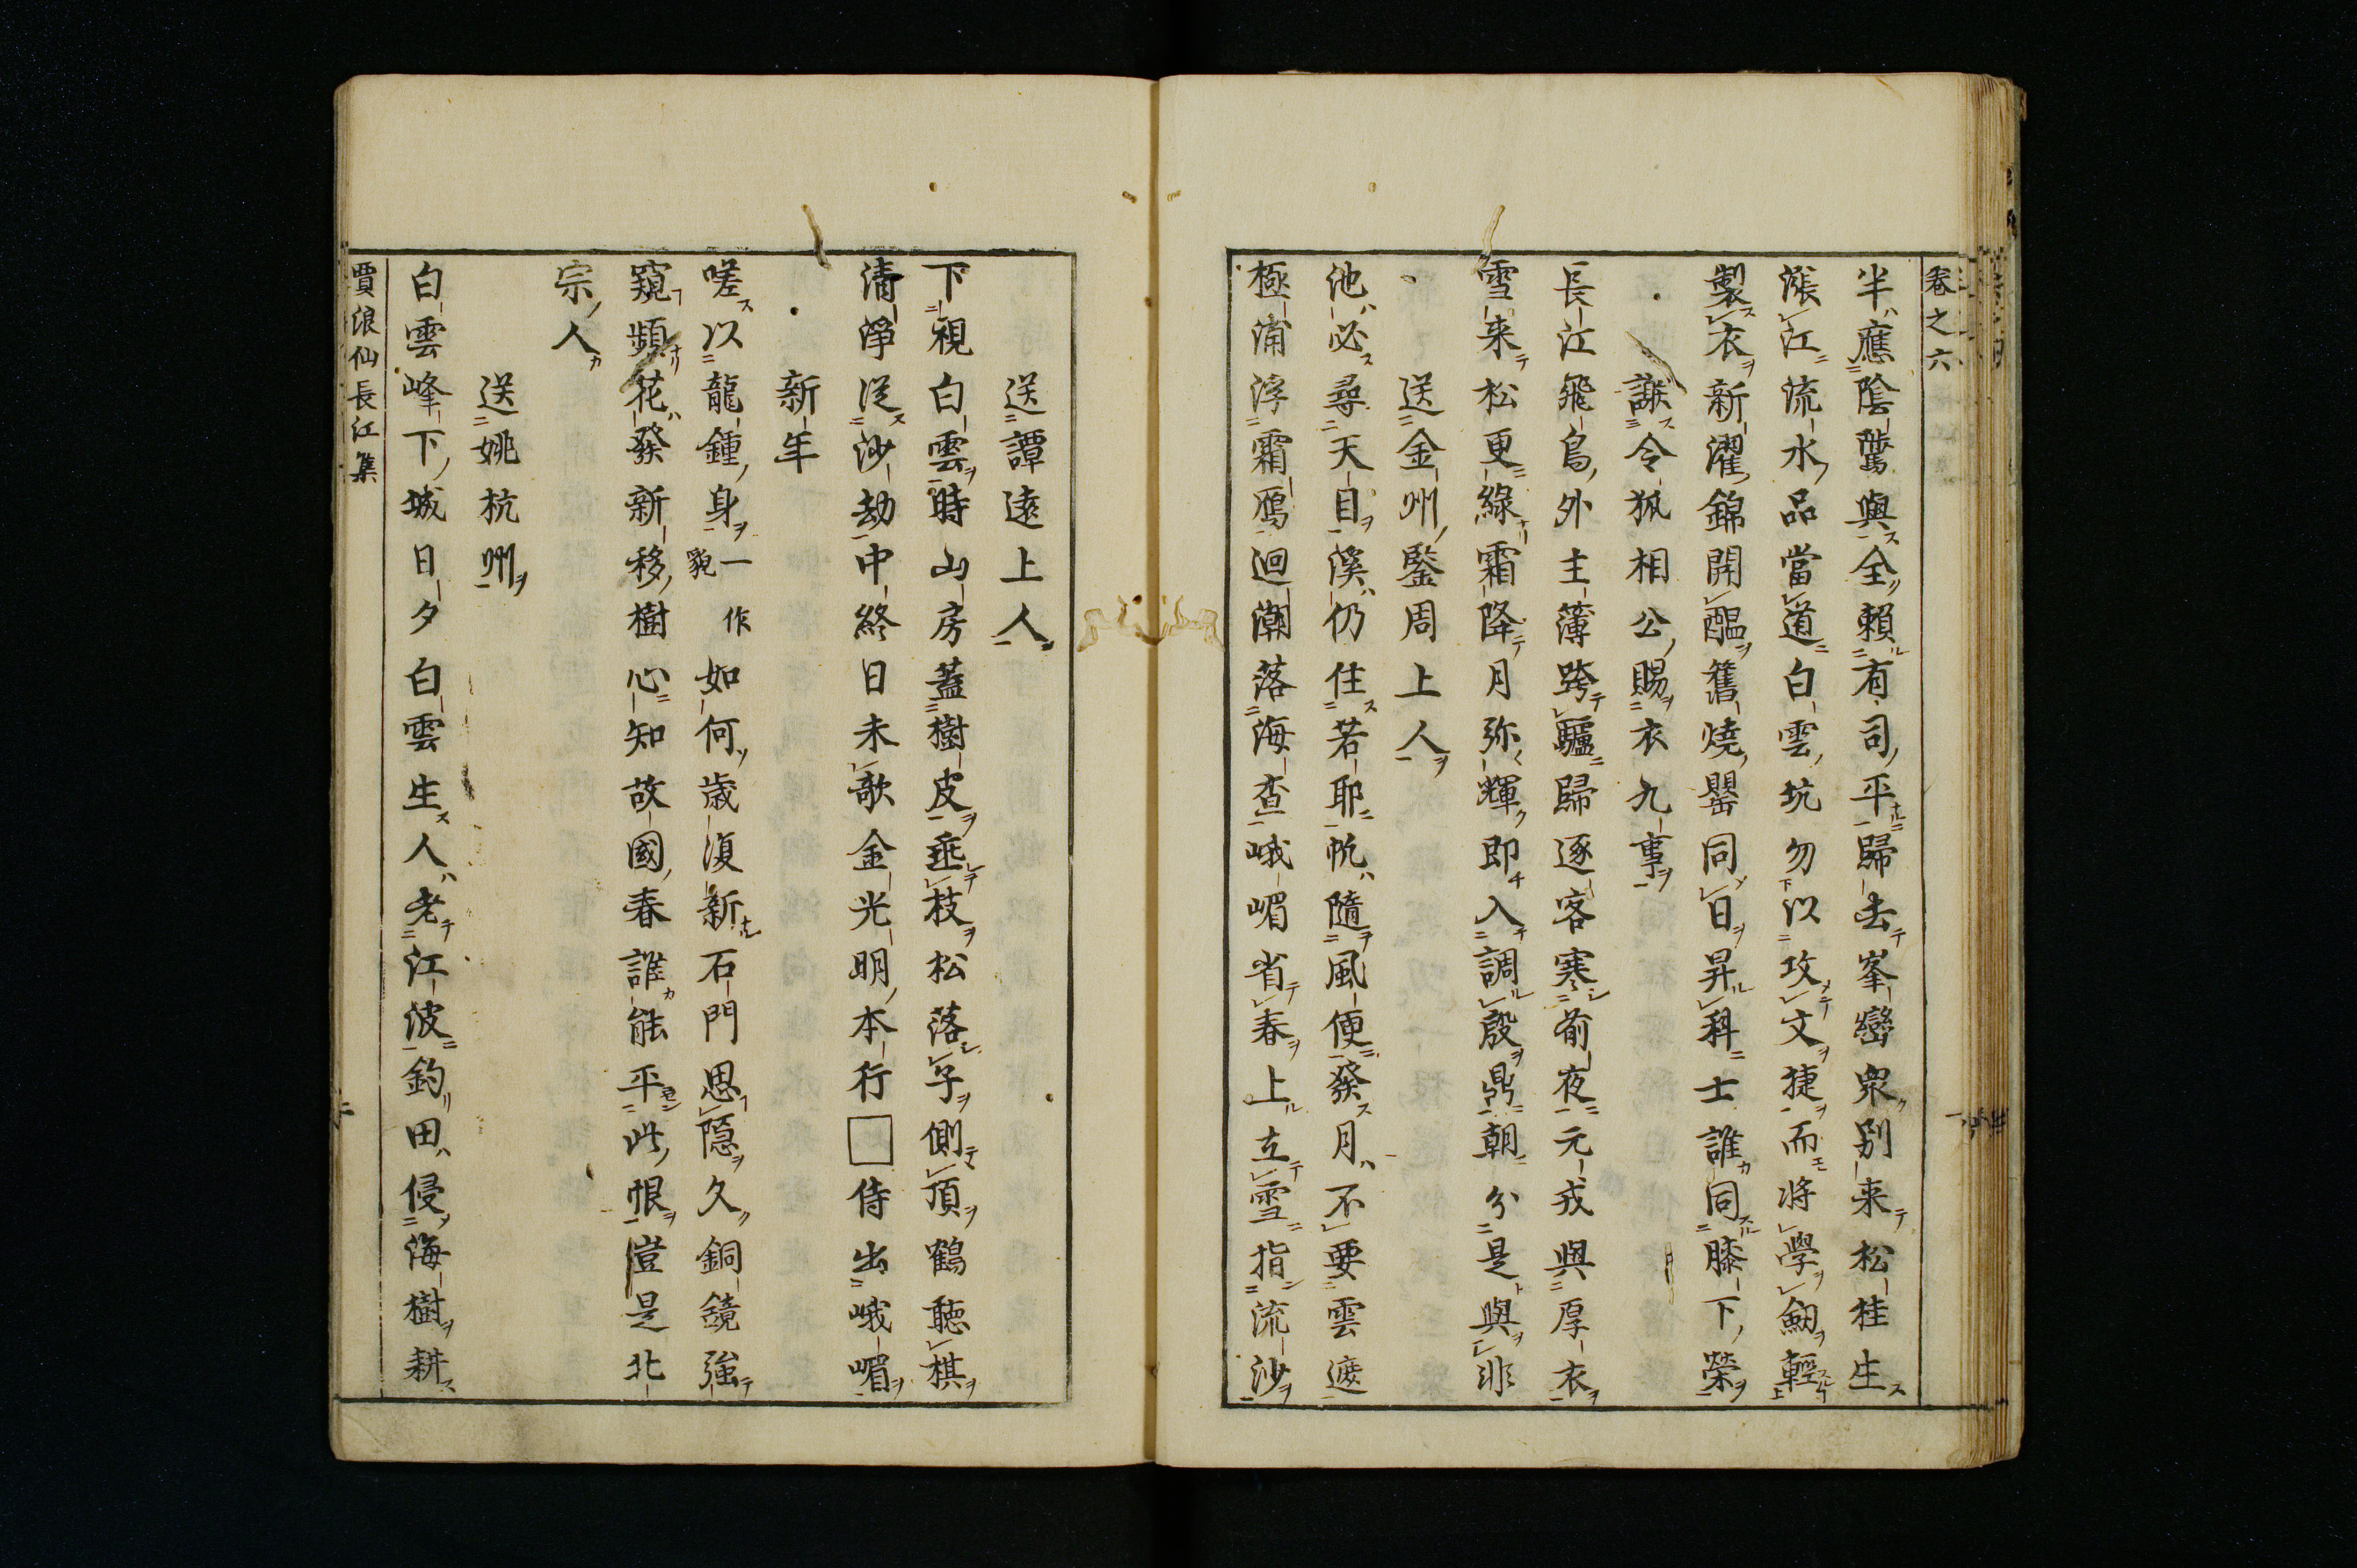 卷之六
半應陰騭與全賴有司平歸去峯巒衆別来松桂生
漲江流水品當道白雲坑勿以攻文捷而將學劔輕
製衣新濯錦開醖舊燒罌同日昇科士誰同膝下榮
謝令狐相公賜衣九事
長江飛鳥外主簿跨驢歸逐客寒前夜元戎與厚衣
雪来松更綠霜降月弥輝即入調殷鼎朝分是與非
送金州鑒周上人
池必尋天目溪仍住若耶帆隨風便發月不要雲遮
極浦浮霜鴈迴潮落海查峨嵋省春上立雪指流沙
送譚遠上人
下視白雲時山房蓋樹皮垂枝松落子側頂鶴聽棋
清淨從沙劫中終日未欹金光明本行□侍出峨嵋
新年
嗟以龍鍾身一作貌如何歲復新石門思隱久銅鏡強
窺頻花發新移樹心知故國春誰能平此恨豈是北
宗人
送姚杭州
白雲峰下城日夕白雲生人老江波釣田侵海樹耕
賈浪仙長江集